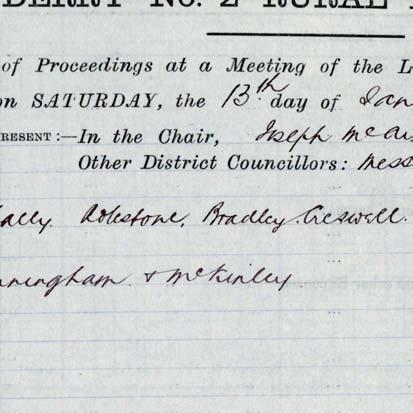 DERRY No. 2 RURAL
of Proceedings at a Meeting of the L
on SATURDAY, the 13th day of Jan
RESENT:—In the Chair, Joseph
Other District Councillors: Mess
Bradley. Creswell.
nningham & McKinley